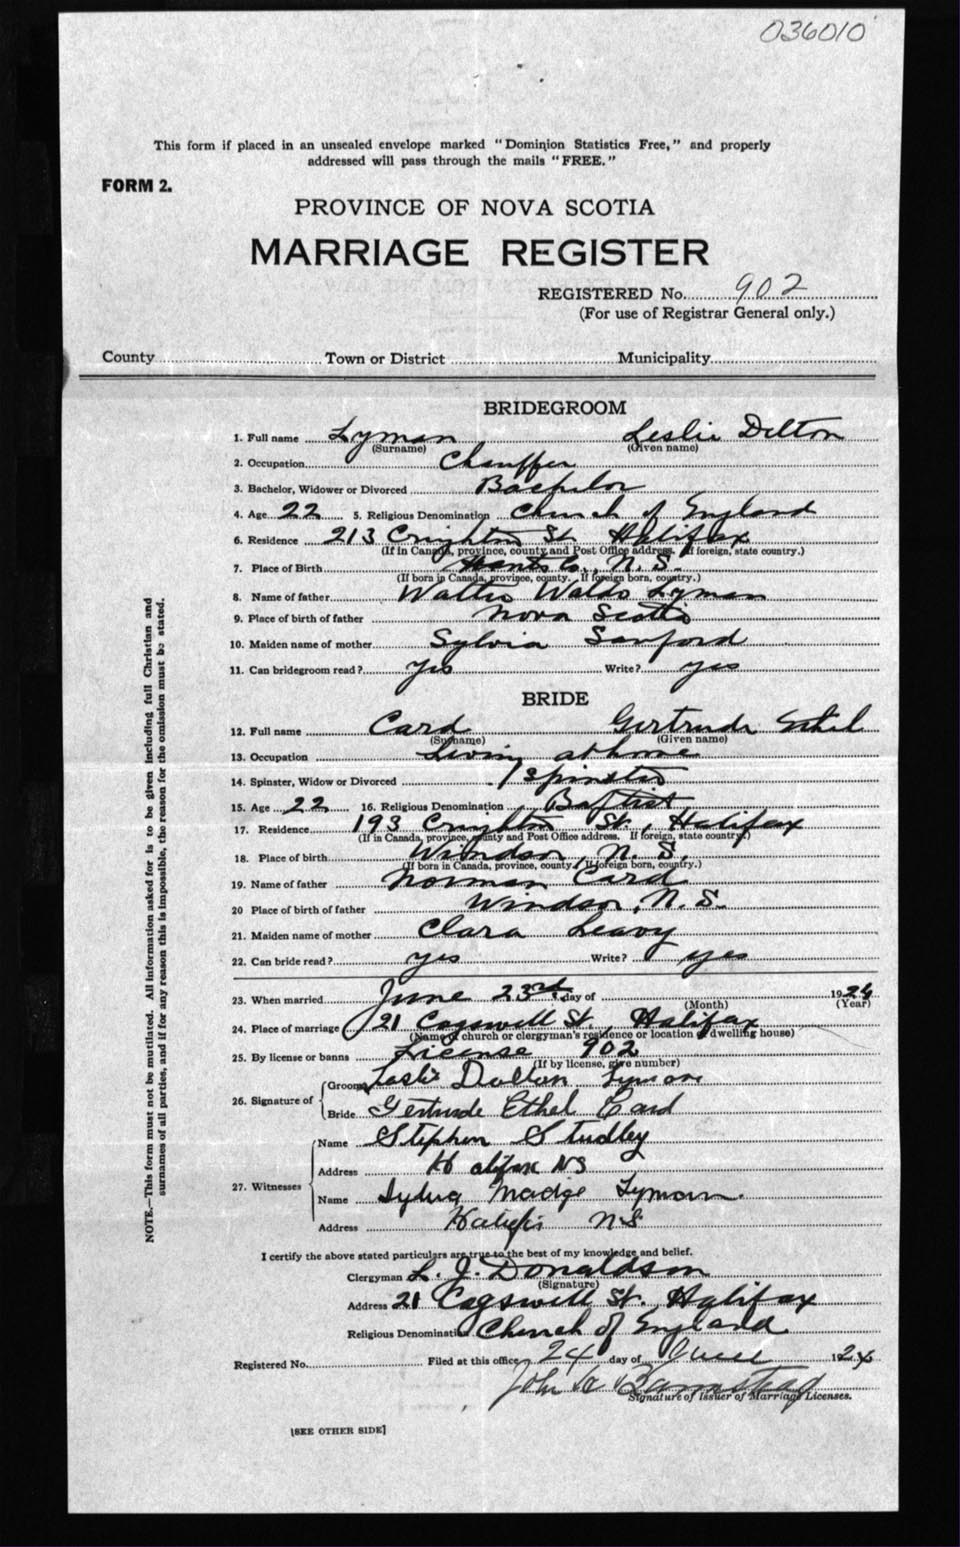 036010
This form if placed in an unsealed envelope marked "Dominion Statistics Free," and properly
addressed will pass through the mails "FREE."
FORM 2.
PROVINCE OF NOVA SCOTIA
MARRIAGE REGISTER
REGISTERED No. 902
(For use of Registrar General only.)
County Town or District Municipality
BRIDEGROOM
1. Full name Lyman Leslie Delton
(Surname) (Given name)
2. Occupation Chauffer
3. Bachelor, Widower or Divorced Bachelor
4. Age 22 5. Religious Denomination Church of England
6. Residence 213 Creighton St. Halifax
(If in Canada, province, county and Post Office address. If foreign, state country.)
7. Place of Birth Hants Co., N.S.
(If born in Canada, province, county. If foreign born, country.)
8. Name of father Walter Waldo Lyman
9. Place of birth of father Nova Scotia
10. Maiden name of mother Sylvia Sanford
11. Can bridegroom read? yes Write? yes
BRIDE
12. Full name Card Gertrude Ethel
(Surname) (Given name)
13. Occupation Living at home
14. Spinster, Widow or Divorced Spinster
15. Age 22 16. Religious Denomination Baptist
17. Residence 193 Creighton St., Halifax
(If in Canada, province, county and Post Office address. If foreign, state country.)
18. Place of birth Windsor, N.S.
(If born in Canada, province, county. If foreign born, country.)
19. Name of father Norman Card
20 Place of birth of father Windsor, N.S.
21. Maiden name of mother Clara Leavy
22. Can bride read? yes Write? yes
23. When married June 23rd day of 1924
(Month) (Year)
24. Place of marriage 21 Cogswell St., Halifax
(Name of church or clergyman's residence or location of dwelling house)
25. By license or banns License 902
(If by license, give number)
26. Signature of Groom Leslie Dalton Lyman
Bride Gertrude Ethel Card
27. Witnesses Name Stephen Studley
Address Halifax NS
Name Sylvia Madge Lyman
Address Halifax NS
I certify the above stated particulars are true to the best of my knowledge and belief.
Clergyman L. J. Donaldson
(Signature)
Address 21 Cogswell St. Halifax
Religious Denomination Church of England
Registered No. Filed at this office 24 day of June 1924
John
Signature of Issuer of Marriage Licenses.
[SEE OTHER SIDE]
NOTE.—This form must not be mutilated. All information asked for is to be given including full Christian and
surnames of all parties, and if for any reason this is impossible, the reason for the omission must be stated.